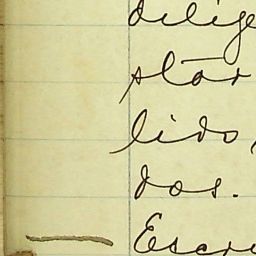 dilige
stár
lido,
dos.
Escre